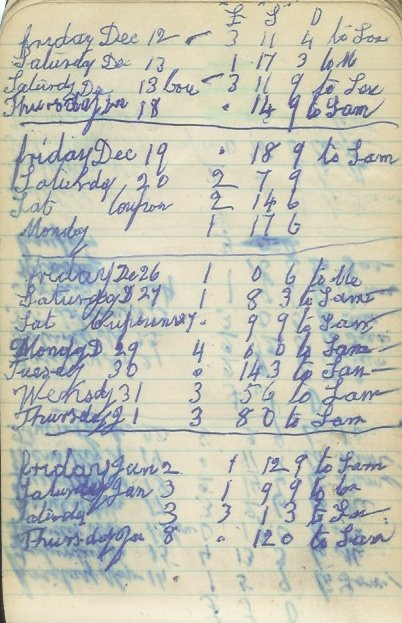 £ S D
friday Dec 12 3 11 4 to Sam
Saturday Dec 13 1 17 3 to Me
Saturdy De 13 Cou 3 11 9 to Sam
Thursday 18 . 14 9 to Sam
friday Dec 19 . 18 9 to Sam
Saturday 20 2 7 9
Sat Coupon 2 14 6
Monday 1 17 6
friday De 26 1 0 6 to Me
Saturday D 27 1 8 3 to Sam
Sat Cupouns 27 . 9 9 to Sam
Monday D 29 4 0 0 to Sam
Tuesday 30 0 14 3 to Sam
Wensdy 31 3 5 6 to Sam
Thursday J 1 3 8 0 to Sam
friday Jan 2 1 12 9 to Sam
Saturday Jan 3 1 9 9 to
Saturday 3 3 1 3 to Sam
Thursday Ja 8 . 12 0 to Sam